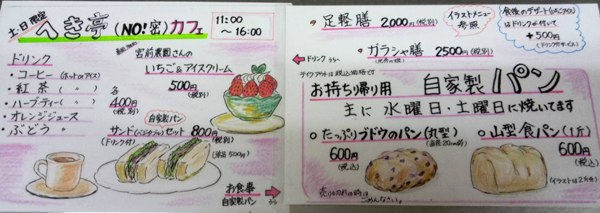 土日限定
へき亭 (NO!密) カフェ
11:00
～16:00
ドリンク
・コーヒー (ホット or アイス)
・紅茶 ( 〃 )
・ハーブティー ( 〃 )
・オレンジジュース
・ぶどう 〃
各
400円
(税別)
宮前農園さんの
いちご&アイスクリーム
500円
(税別)
自家製パン
サンド(ベジタブル)セット 800円
(ドリンク付)
(税別)
(単品500円)
お食事
自家製パン
うら
・足軽膳 2,000円 (税別)
イラストメニュー
参照
ドリンク うらへ
・ガラシャ膳 2500円
(税別)
食後のデザート
はドリンク付いて
+500円
(ドリンクサービス)
テイクアウトは税込価格です
お持ち帰り用 自家製パン
主に 水曜日・土曜日に焼いてます
・たっぷりブドウのパン(丸型)
(直径20cm弱)
600円
(税込)
・山型食パン(1斤)
600円
(税込)
(イラストは2斤分)
売り切れの時は
ごめんなさい。